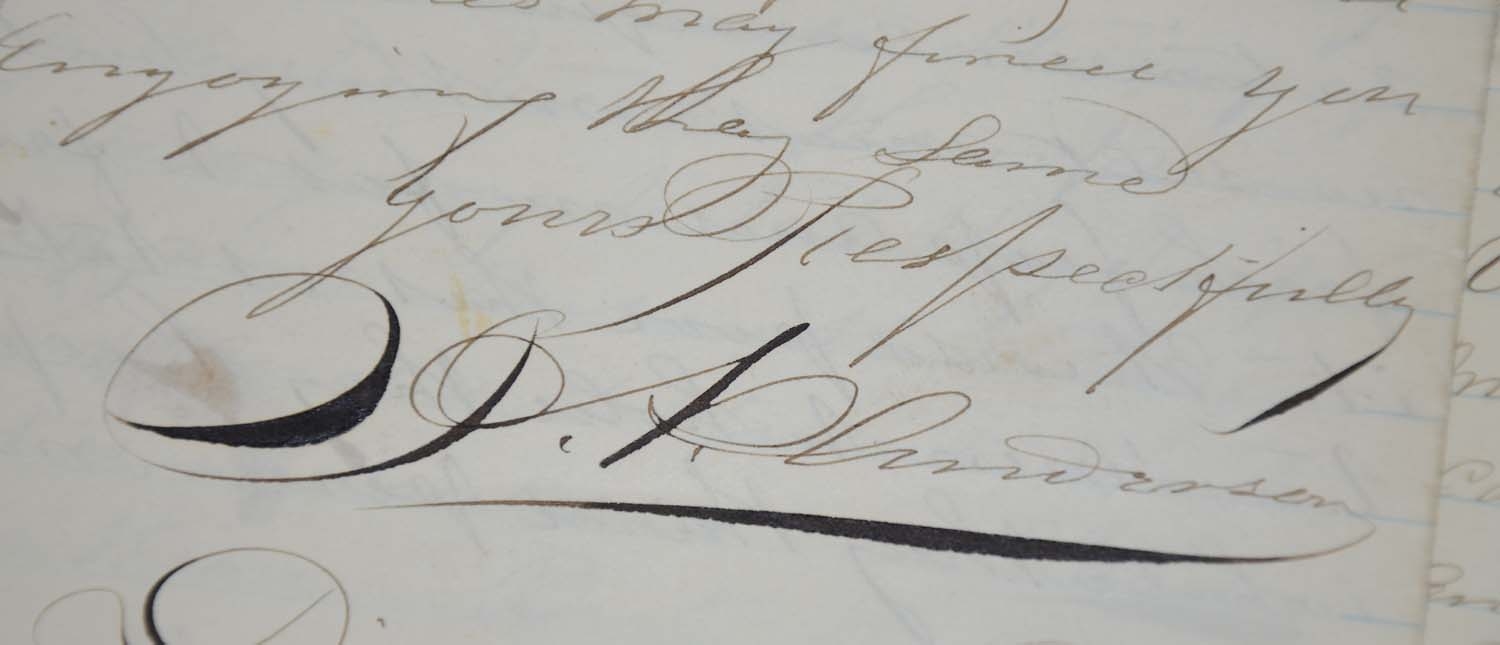 may finee you
Enjoying they Same
Yours Respectfully
Anderson